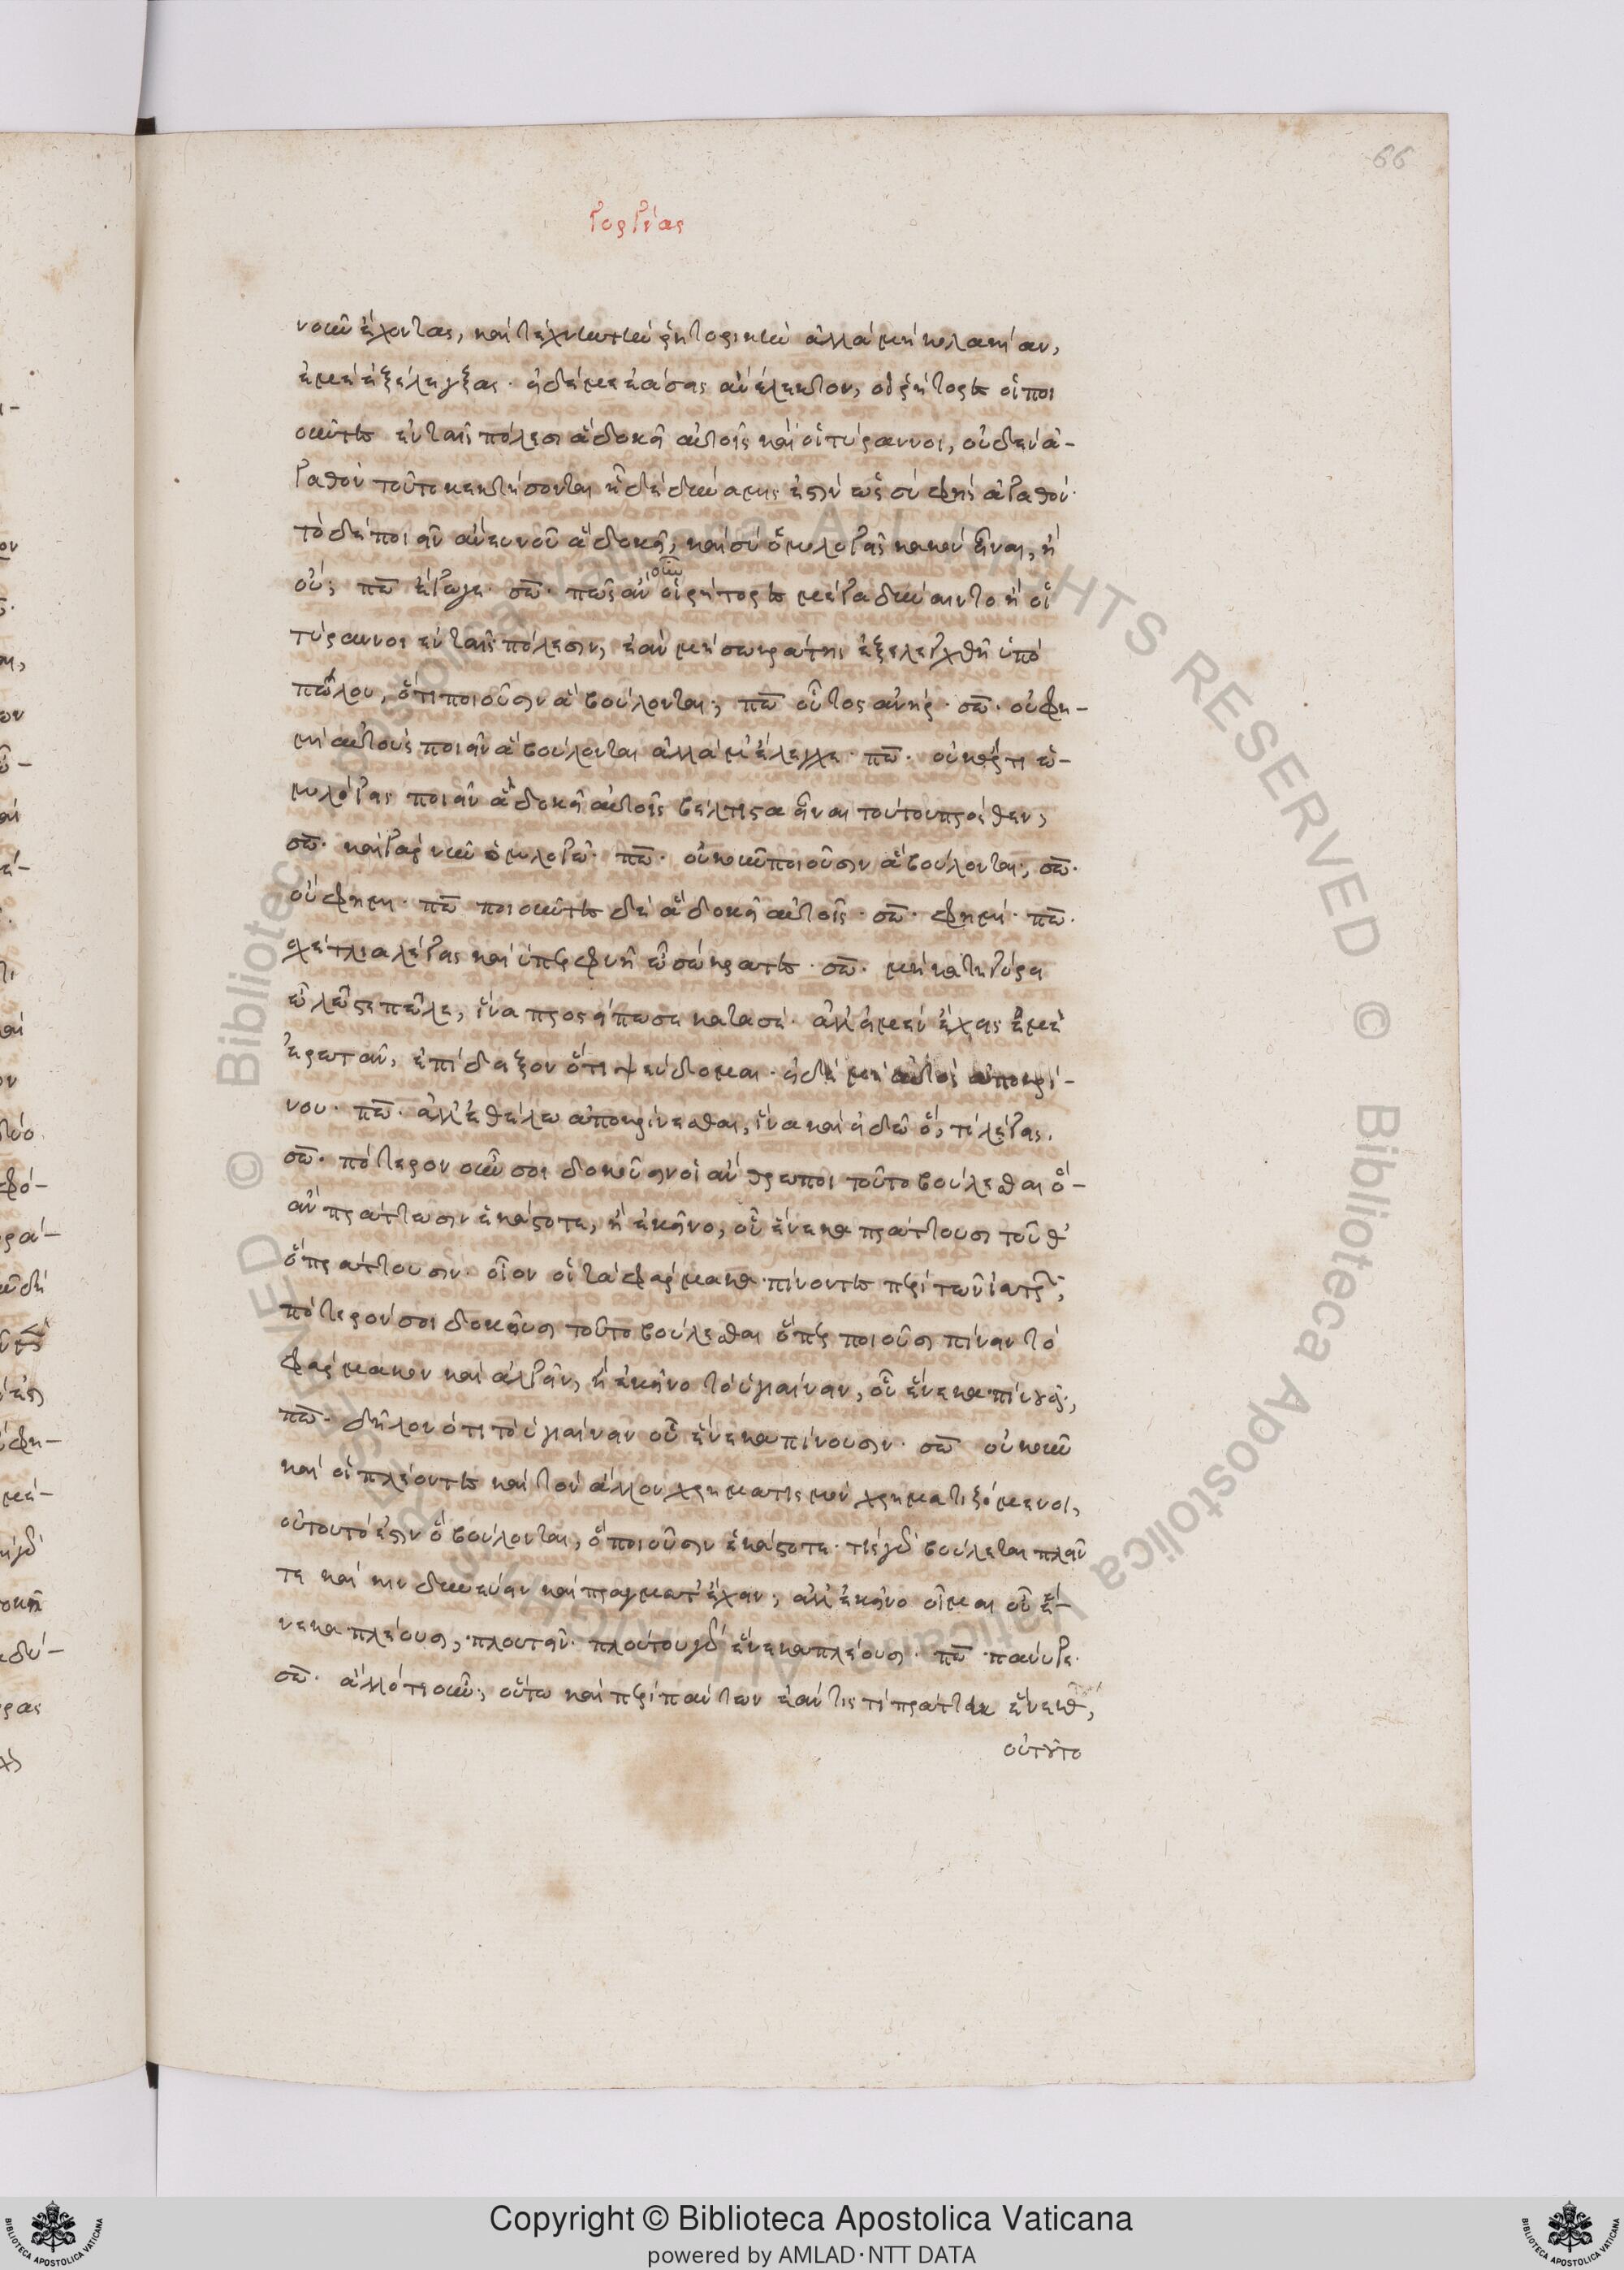 66
Γοργίας
νοῦν ἔχοντας, καὶ τέχνην τὴν ῥητορικὴν ἀλλὰ μὴ κολακείαν,
ἐμὲ ἐξελέγξας· εἰ δέ με ἐάσεις ἀνέλεγκτον, οἱ ῥήτορες οἱ ποι
οῦντες ἐν ταῖς πόλεσιν ἃ δοκεῖ αὐτοῖς καὶ οἱ τύραννοι, οὐδὲν ἀ-
γαθὸν τοῦτο κεκτήσονται εἰ δὲ δύναμις ἐστὶν ὡς σὺ φὴς ἀγαθόν·
τὸ δὲ ποιεῖν ἄνευ νοῦ ἃ δοκεῖ, καὶ σὺ ὁμολογεῖς κακὸν εἶναι, ἢ
οὔ; πῶ ἔγωγε· σω· πῶς ἂν οὖν οἱ ῥήτορες μέγα δύναιντο ἢ οἱ
τύραννοι ἐν ταῖς πόλεσιν, ἐὰν μὴ σωκράτης ἐξελεγχθῆ ὑπὸ
πώλου, ὅτι ποιοῦσιν ἃ βούλονται; πω οὗτος ἀνήρ· σω· οὔ φη-
μι αὐτοὺς ποιεῖν ἃ βούλονται ἀλλά μ' ἔλεγχε· πω· οὐκ ἄρτι ὡ-
μολόγεις ποιεῖν ἃ δοκεῖ αὐτοῖς βέλτιστα εἶναι τούτου πρόσθεν;
σω· καὶ γὰρ νῦν ὁμολογῶ· πω· οὐκοῦν ποιοῦσιν ἃ βούλονται; σω·
οὔ φημι· πω ποιοῦντες δὲ ἃ δοκεῖ αὐτοῖς· σω· φημί· πω·
σχέτλια λέγεις καὶ ὑπερφυῆ ὦ σώκρατες· σω· μὴ κατηγόρει
ὦ λῶστε πῶλε, ἵνα προσείπω σε κατὰ σέ· ἀλλ' εἰ μὲν ἔχεις ἐμὲ
ἐρωτᾶν, ἐπίδειξον ὅτι ψεύδομαι· εἰ δὲ μὴ αὐτὸς ἀποκρί-
νου· πω· ἀλλ' ἐθέλω ἀποκρίνεσθαι, ἵνα καὶ εἰδῶ ὅ, τι λέγεις.
σω· πότερον οὖν σοι δοκοῦσιν οἱ ἄνθρωποι τοῦτο βούλεσθαι ὃ-
ἂν πράττωσιν ἑκάστοτε, ἢ ἐκεῖνο, οὗ ἕνεκα πράττουσι τοῦθ'
ὃ πράττουσιν· οἷον οἱ τὰ φάρμακα πίνοντες περὶ τῶν ἰατρῶν;
πότερόν σοι δοκοῦσι τοῦτο βούλεσθαι ὅπερ ποιοῦσι πίνειν τὸ
φάρμακον καὶ ἀλγεῖν, ἢ ἐκεῖνο τὸ ὑγιαίνειν, οὗ ἕνεκα πίνουσι;
πω· δῆλον ὅτι τὸ ὑγιαίνειν οὗ ἕνεκα πίνουσιν· σω οὐκοῦν
καὶ οἱ πλέοντες καὶ τὸν ἄλλον χρηματισμὸν χρηματιζόμενοι,
οὐ τοῦτό ἐστιν ὃ βούλονται, ὃ ποιοῦσιν ἑκάστοτε· τίς γὰρ βούλεται πλεῖν
τε καὶ κινδυνεύειν καὶ πράγματ' ἔχειν; ἀλλ' ἐκεῖνο οἶμαι οὗ ἕ-
νεκα πλέουσι, πλουτεῖν· πλούτου γὰρ ἕνεκα πλέουσι· πω· πάνυ γε·
σω· ἄλλό τι οὖν; οὕτω καὶ περὶ πάντων ἐάν τις τὶ πράττη ἕνεκά,
οὐ τοῦτο
Copyright © Biblioteca Apostolica Vaticana
powered by AMLAD·NTT DATA